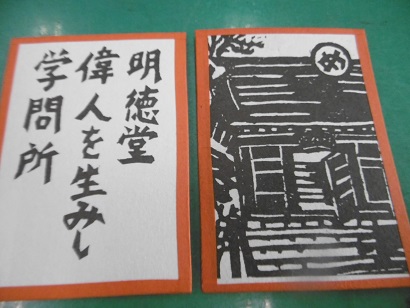 明徳堂
偉人を生みし
学問所
め